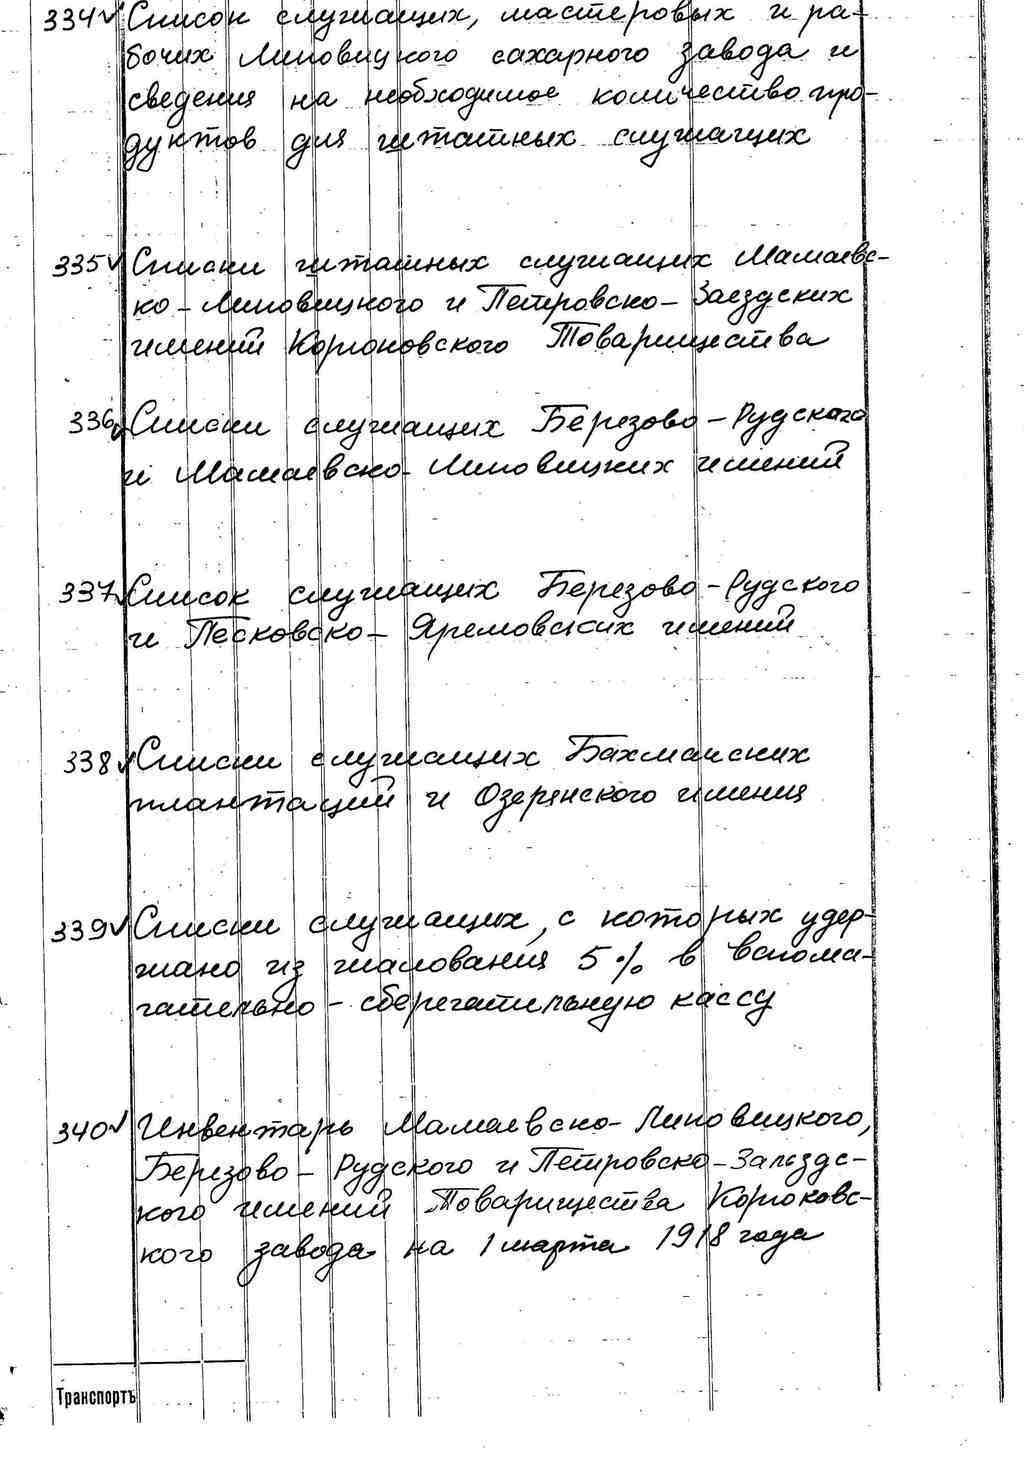 334✓ Список служащих, мастеровых и ра-
бочих Линовицкого сахарного завода и
сведения на необходимое количество про-
дуктов для штатных служащих
335✓ Списки штатных служащих Мамаевс-
ко-Линовицкого и Петровско-Заездских
имений Корюковского Товарищества
336✓ Списки служащих Березово-Рудского
и Мамаевско-Линовицких имений
337✓ Список служащих Березово-Рудского
и Песковско-Яремовских имений
338✓ Списки служащих Бахмачских
плантаций и Озерянского имения
339✓ Списки служащих, с которых удер-
жано из жалования 5% в вспома-
гательно-сберегательную кассу
340✓ Инвентарь Мамаевско-Линовицкого,
Березово-Рудского и Петровско-Заездс-
кого имений Товарищества Корюковс-
кого завода на 1 марта 1918 года
Транспортъ